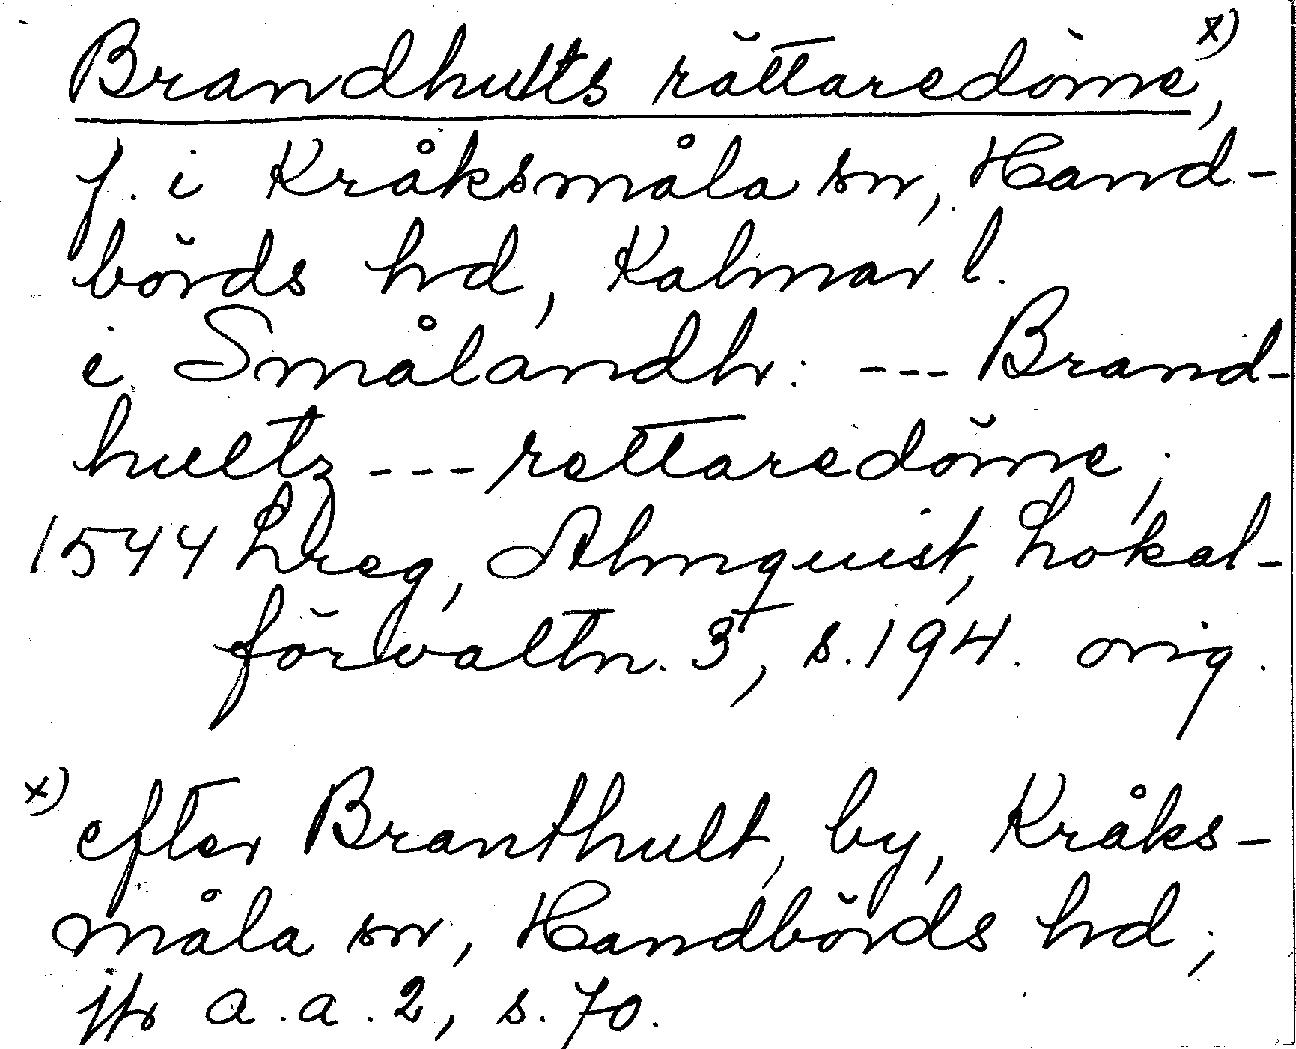 Brandhults rättaredöme x),
f. i Kråksmåla sn, Hand-
börds hd, Kalmar l.
i Smålandh: --- Brand-
hultz --- rettaredöme;
1544 Lreg, Almquist, Lokal-
förvaltn. 3, s. 194. orig.
x) efter Branthult, by, Kråks-
måla sn, Handbörds hd;
jfr a.a. 2, s. 70.